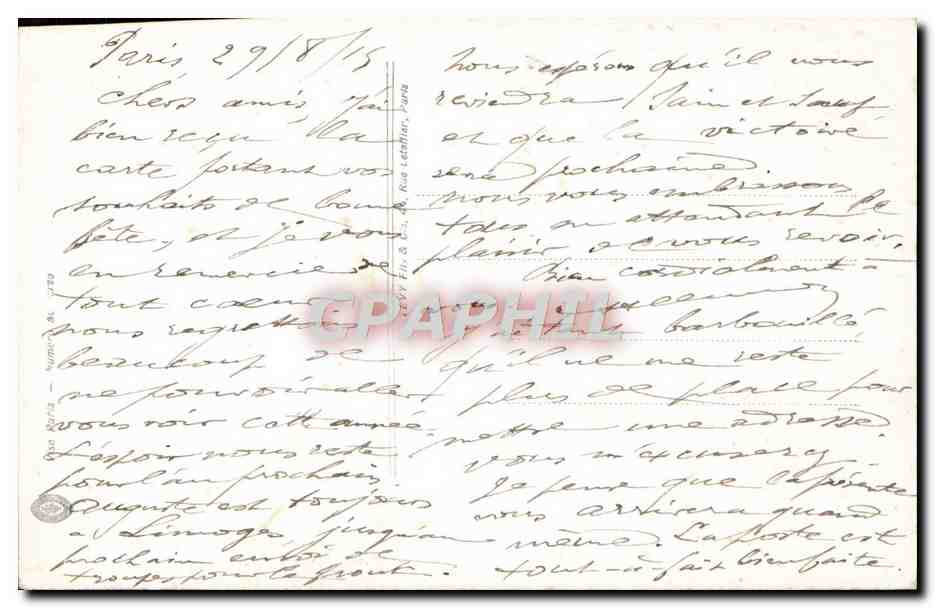 Paris 29/8/15
chers amis, J'ai
bien reçu la
carte portant vos
souhaits de bonne
fête, et je vous
en remercie de
tout coeur
nous regrettons
beaucoup de
ne pouvoir aller
vous voir cette année.
L'espoir nous reste
pour l'an prochain.
Auguste est toujours
à Limoges jusqu'au
prochain envoi de
troupes pour le front.
nous espérons qu'il nous
reviendra sain et sauf
et que la victoire
sera prochaine
nous vous embrassons
tous, en attendant le
plaisir de vous revoir.
Bien cordialement à
vous
barbouillé
qu'il ne me reste
plus de place pour
mettre une adresse.
vous m'excuserez
Je pense que la présente
vous arrivera quand
même. La poste est
tout-à-fait bien faite.
LEVY Fils & Cie, Rue Letellier, Paris
CPAPHIL